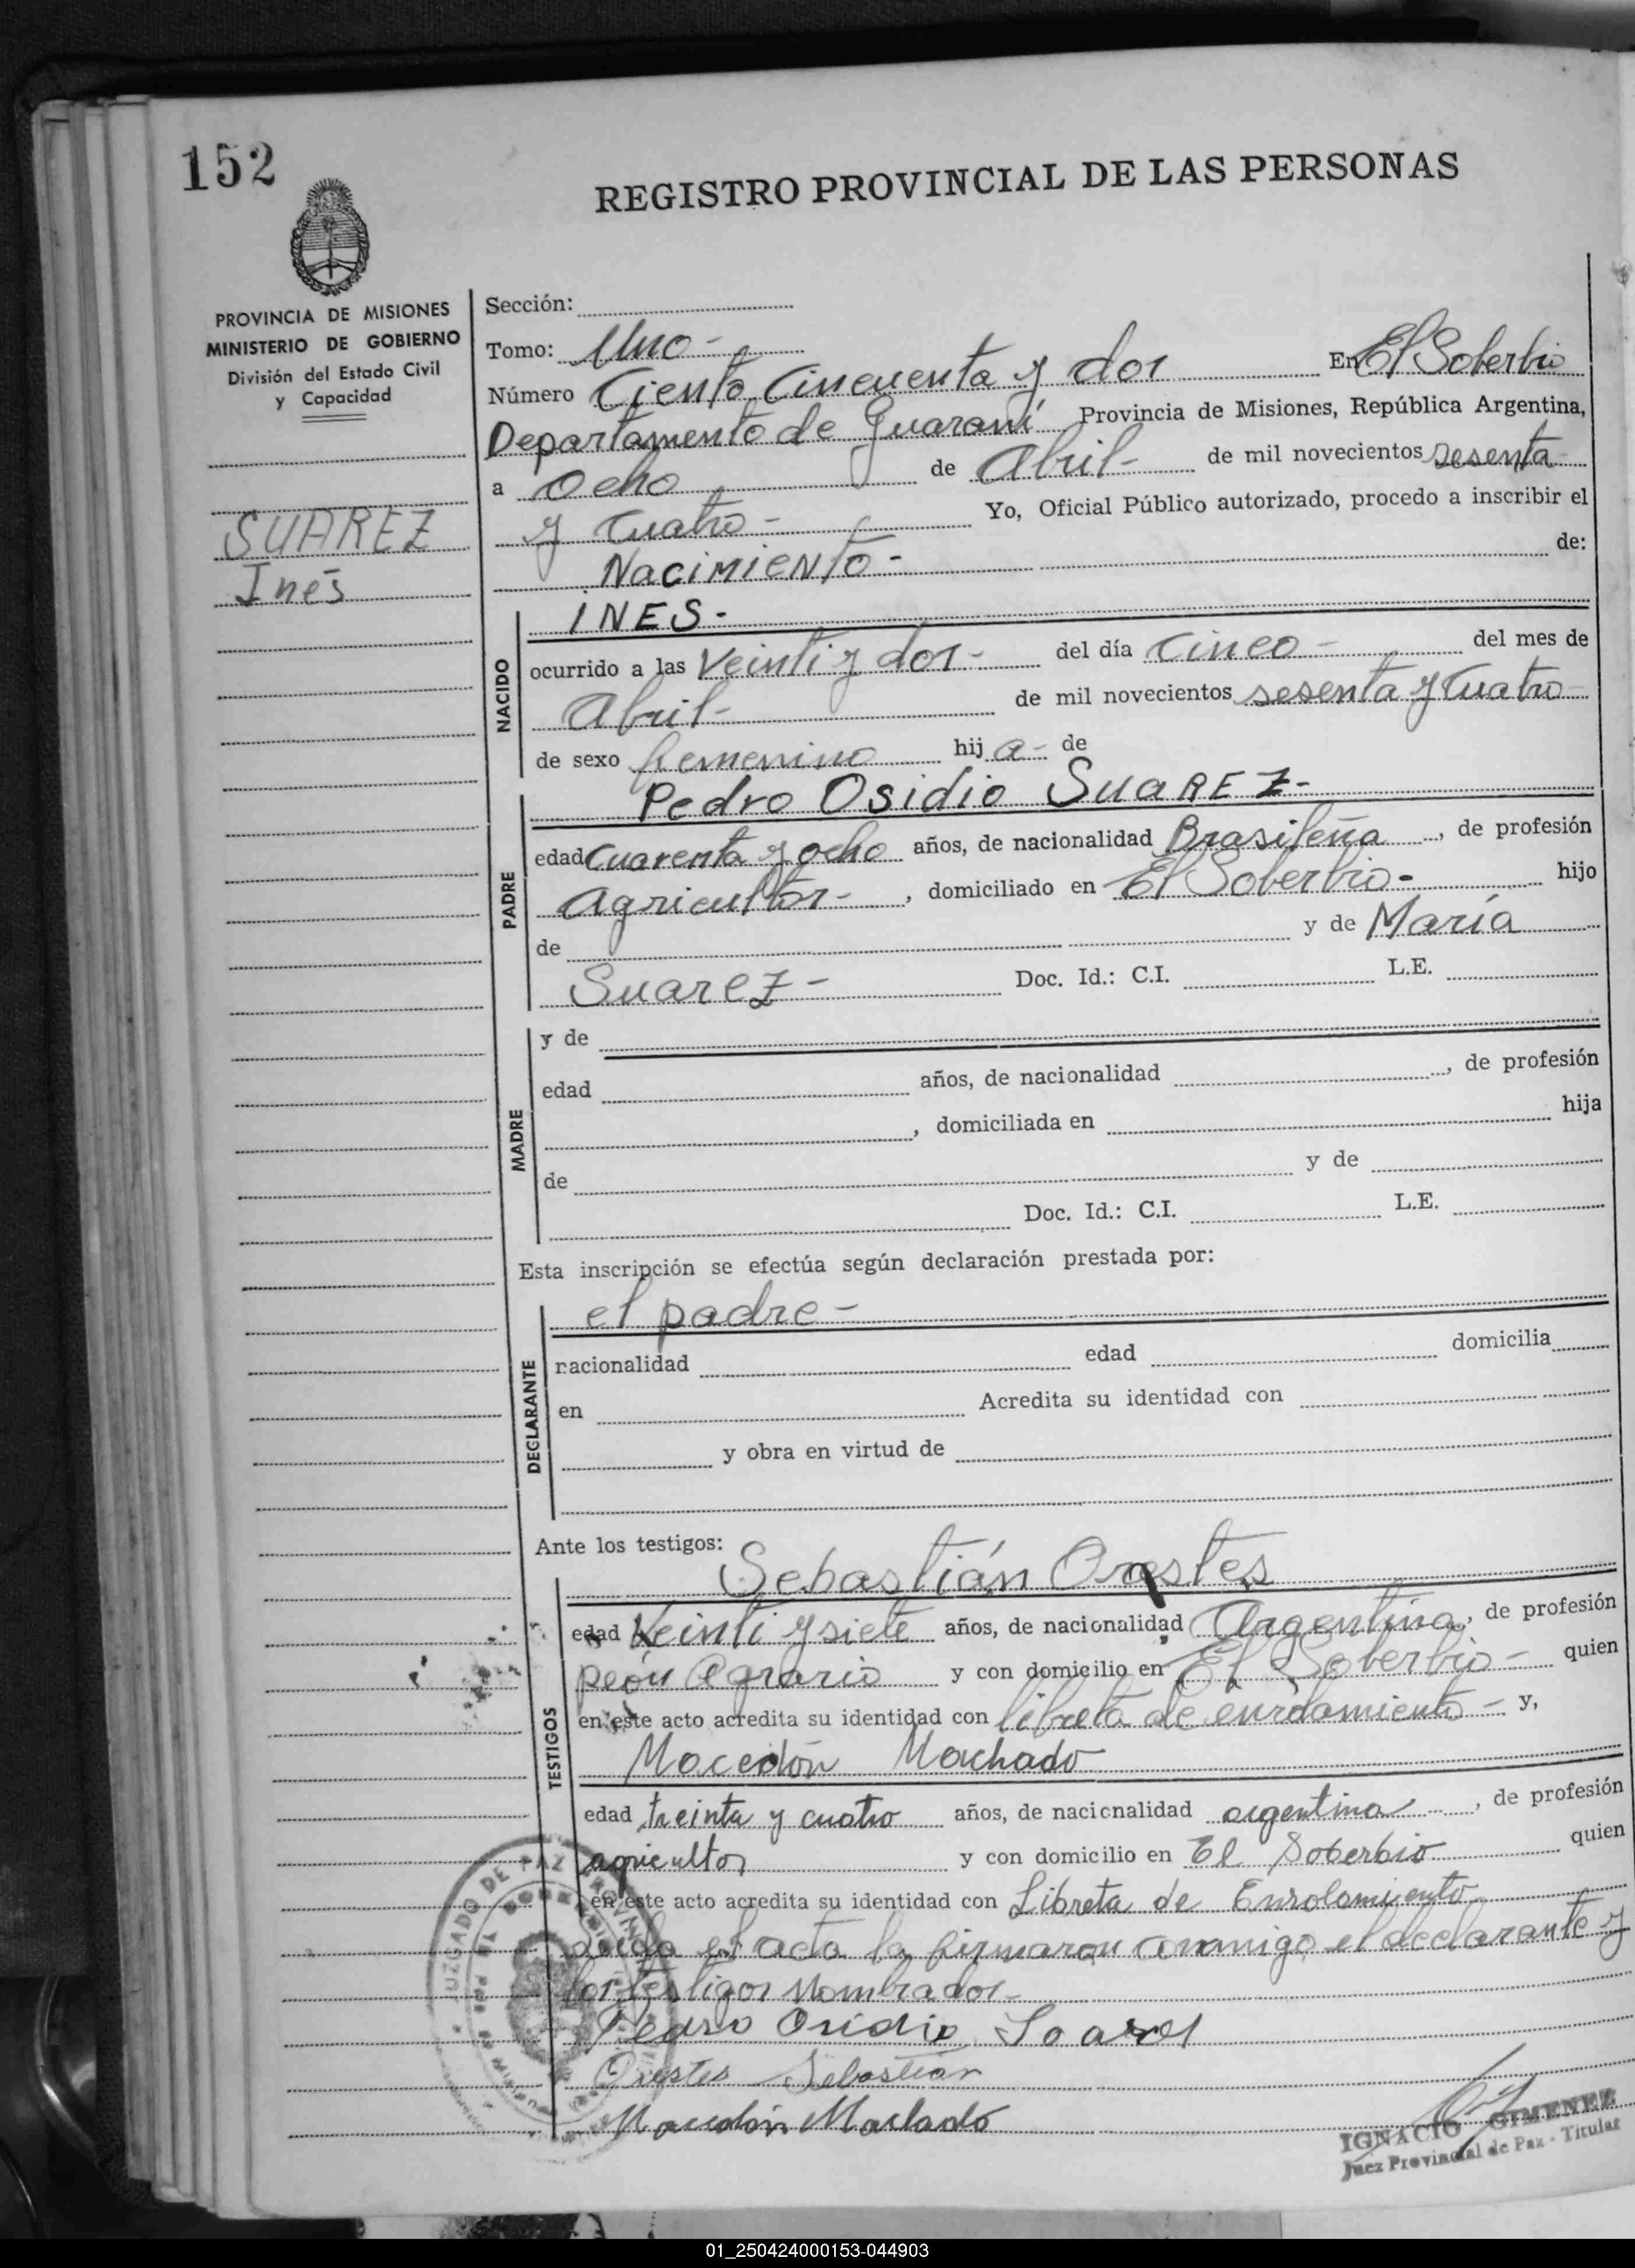 152
REGISTRO PROVINCIAL DE LAS PERSONAS
PROVINCIA DE MISIONES
MINISTERIO DE GOBIERNO
División del Estado Civil
y Capacidad
SUAREZ
Inés
Sección:
Tomo: Uno-
Número Ciento Cincuenta y dos En El Soberbio
Departamento de Guaraní Provincia de Misiones, República Argentina,
a Ocho de Abril- de mil novecientos sesenta
y Cuatro- Yo, Oficial Público autorizado, procedo a inscribir el
Nacimiento- de:
NACIDO
INES-
ocurrido a las Veinti y dos- del día Cinco- del mes de
Abril- de mil novecientos sesenta y Cuatro-
de sexo femenino hija- de
PADRE
Pedro Osidio SUAREZ-
edad Cuarenta y ocho años, de nacionalidad Brasileña, de profesión
Agricultor-, domiciliado en El Soberbio- hijo
de y de María
Suarez- Doc. Id.: C.I. L.E.
MADRE
y de
edad años, de nacionalidad , de profesión
, domiciliada en hija
de y de
Doc. Id.: C.I. L.E.
Esta inscripción se efectúa según declaración prestada por:
DECLARANTE
el padre-
nacionalidad edad domicilia
en Acredita su identidad con
y obra en virtud de
Ante los testigos:
TESTIGOS
Sebastián Orestes
edad Veinti y siete años, de nacionalidad Argentina, de profesión
peón Agrario y con domicilio en El Soberbio- quien
en este acto acredita su identidad con libreta de enrolamiento- y,
Macedón Machado
edad treinta y cuatro años, de nacionalidad argentina, de profesión
agricultor y con domicilio en El Soberbio quien
en este acto acredita su identidad con Libreta de Enrolamiento
Leida el acta la firmaron conmigo el declarante y
los testigos Nombrados-
Pedro Osidio Soares
Orestes Sebastian
Macedón Machado
JUZGADO DE PAZ
IGNACIO GIMENEZ
Juez Provincial de Paz - Titular
01_250424000153-044903